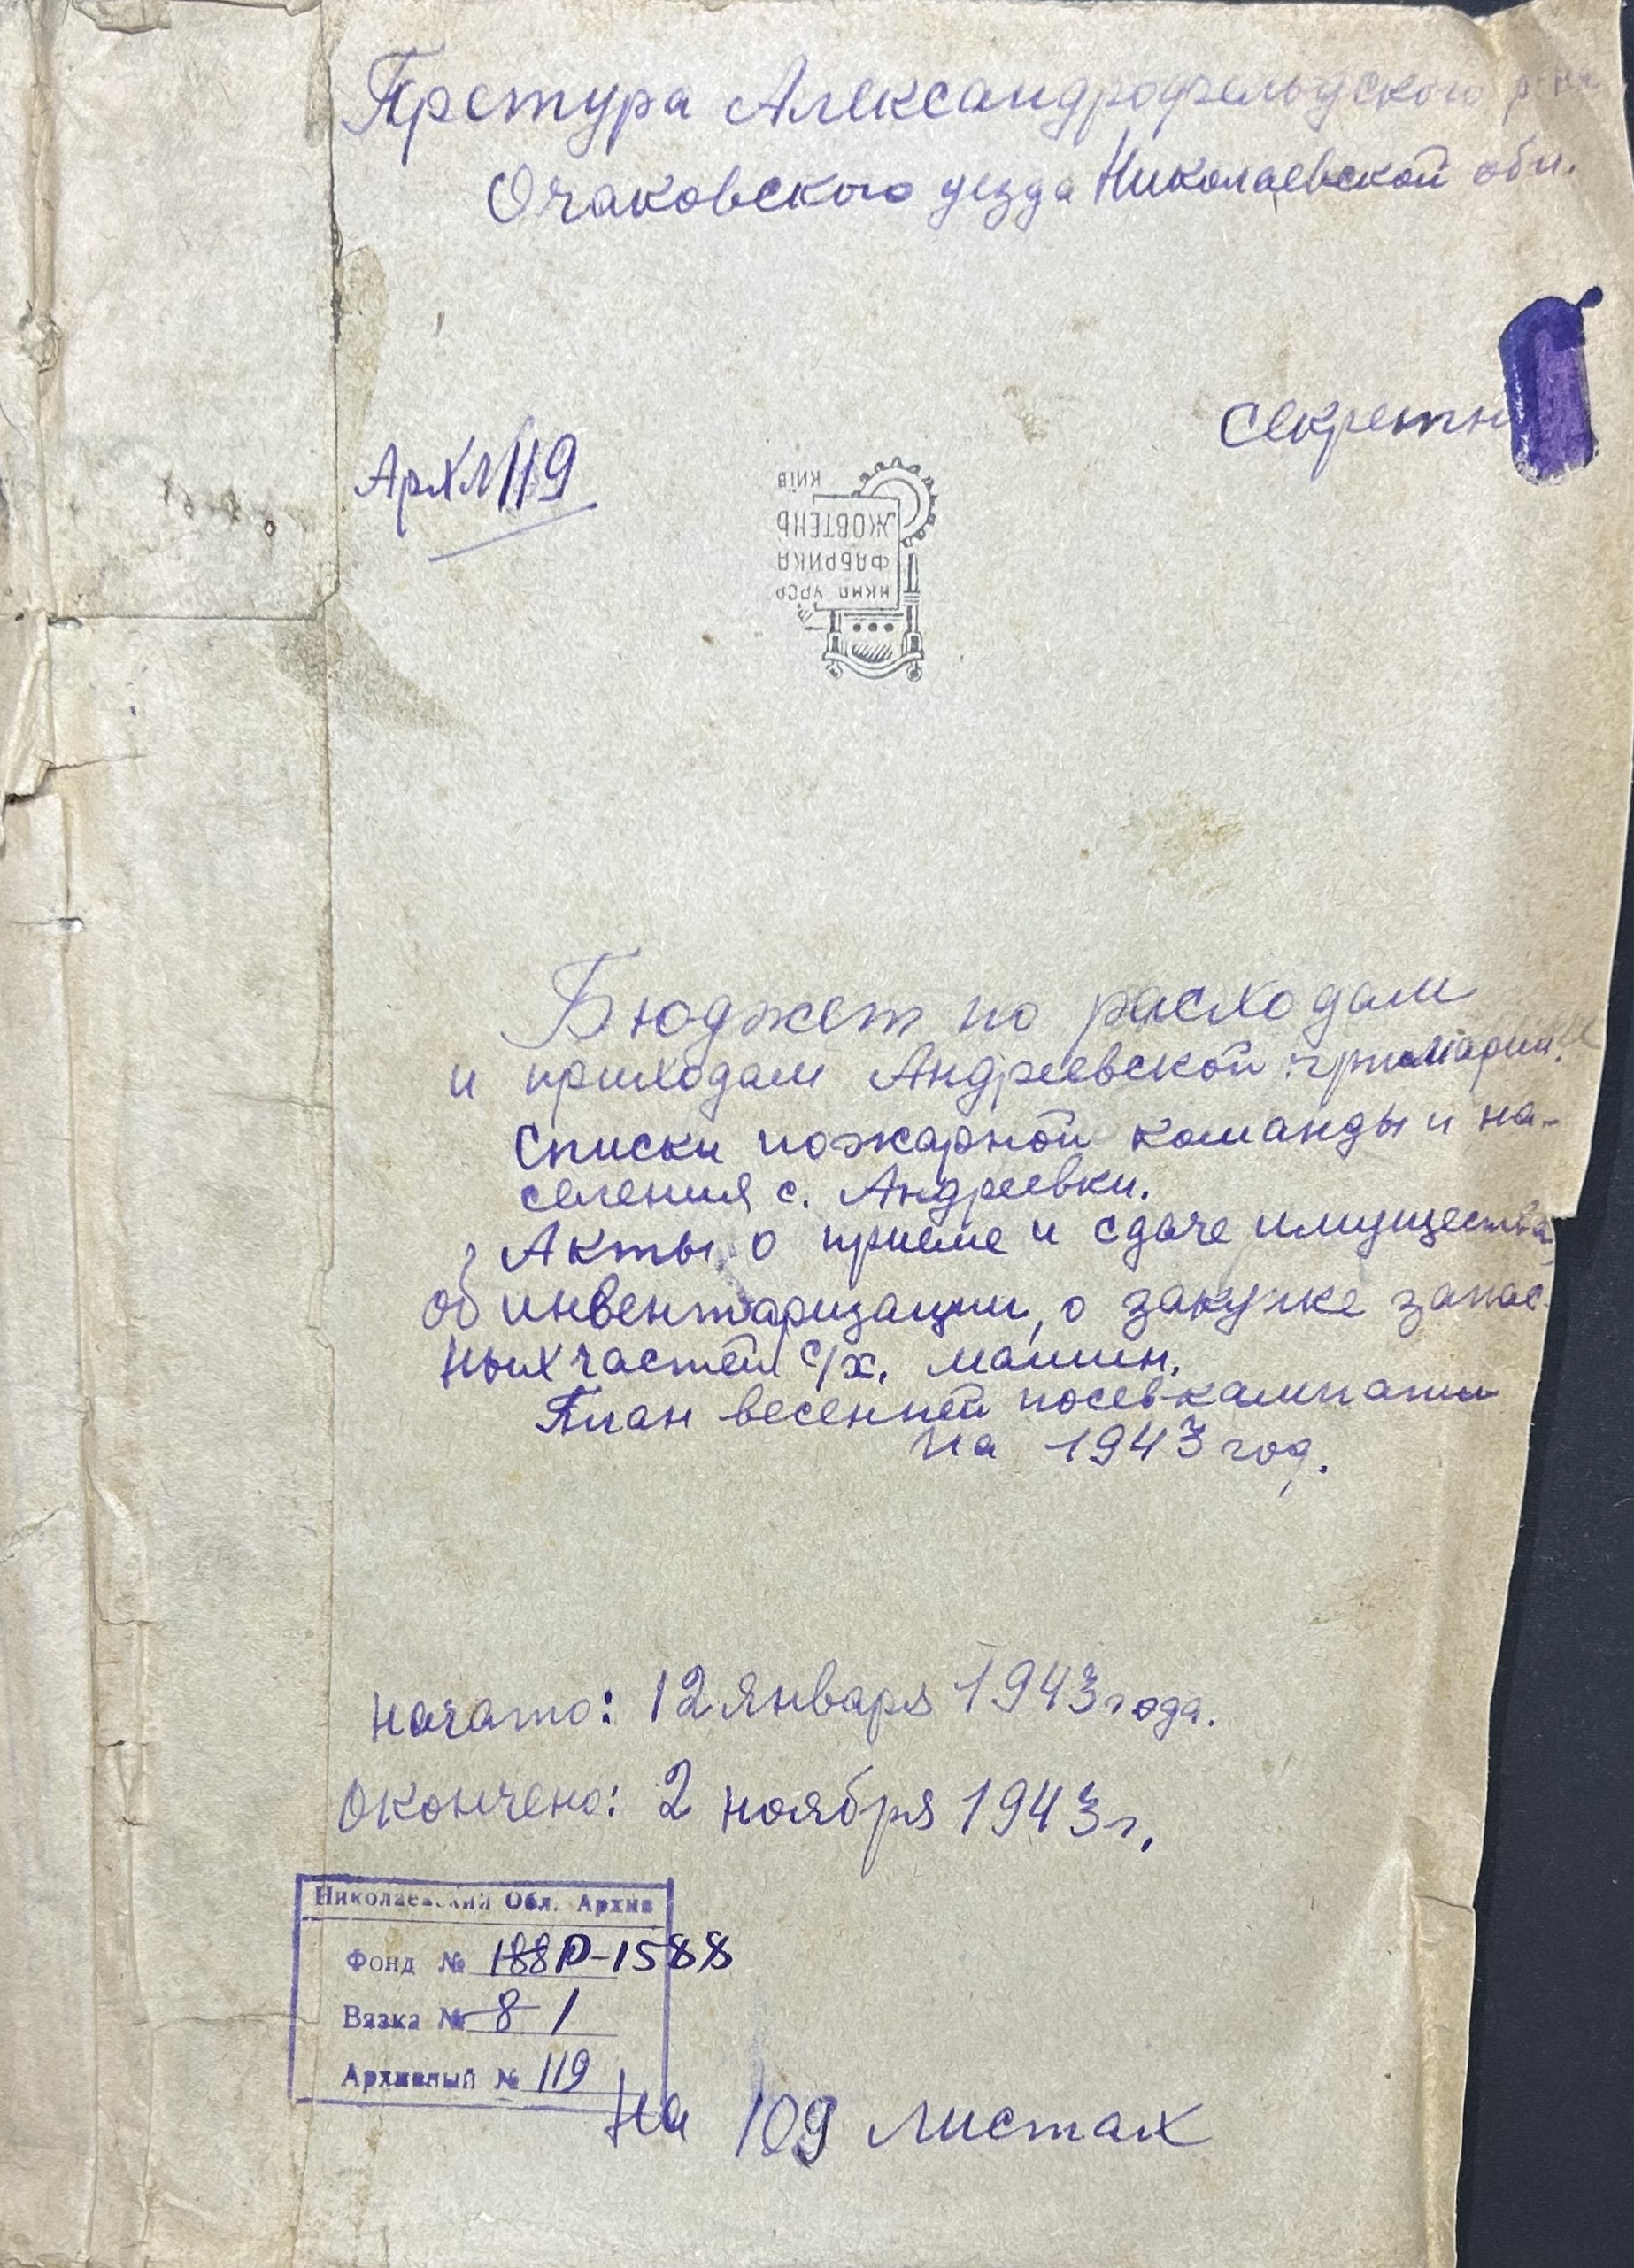 Претура Александрофельдского р-на
Очаковского уезда Николаевской обл.
Секретн
Арх№119
КИЇВ
ЖОВТЕНЬ
ФАБРИКА
НКМП УРСР
Бюджет по расходам
и приходам Андреевской примарии.
Списки пожарной команды и на-
селения с. Андреевки.
Акты о приеме и сдаче имущества,
об инвентаризации, о закупке запас-
ных частей с/х. машин.
План весенней посевкампании
на 1943 год.
начато: 12 января 1943 года.
Окончено: 2 ноября 1943 г.
Николаевский Обл. Архив
Фонд № 188 Р-1588
Вязка № 8 1
Архивный № 119
На 109 листах